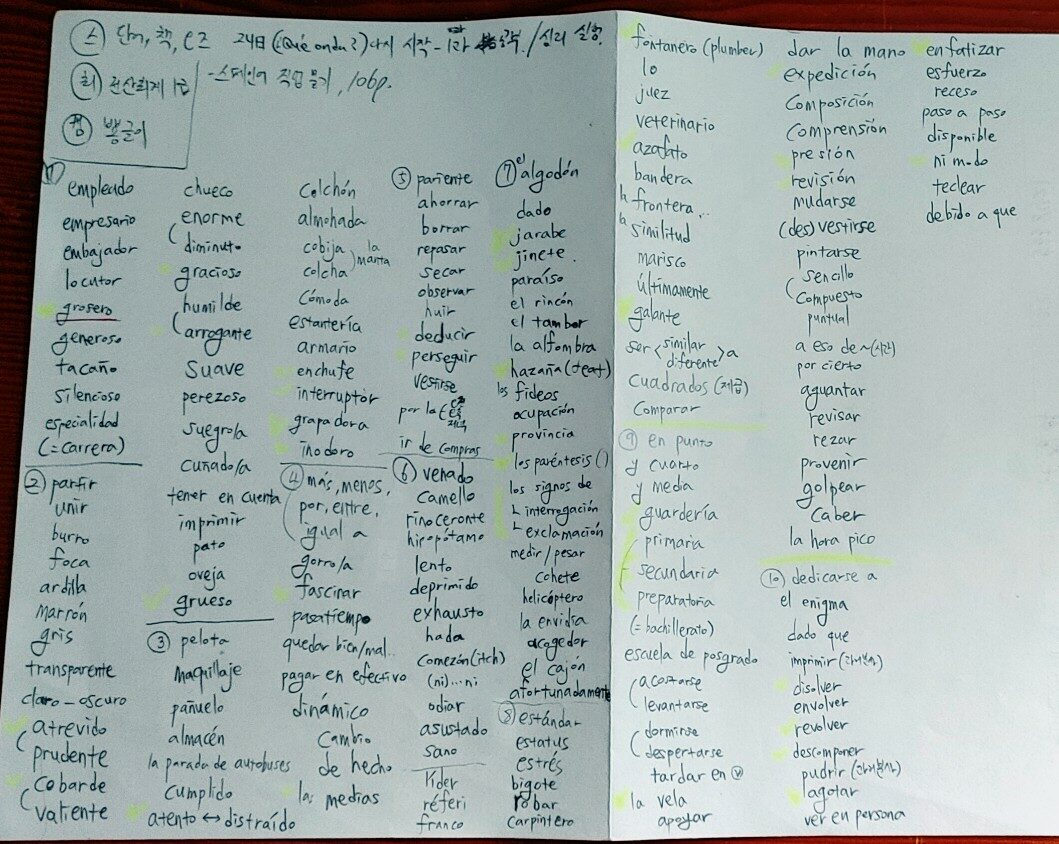 단어, 책, 24日 (¿Qué onda?) 다시 시작 / 심리 실험.
회 전산회계 1급 - 스페인어
empleado
empresario
embajador
locutor
grosero
generoso
tacaño
silencioso
especialidad
(= carrera)
② partir
unir
burro
foca
ardilla
marrón
gris
transparente
claro - oscuro
atrevido
prudente
cobarde
valiente
chueco
enorme
diminuto
gracioso
humilde
arrogante
suave
perezoso
suegro/a
cuñado/a
tener en cuenta
imprimir
pato
oveja
grueso
③ pelota
maquillaje
pañuelo
almacén
la parada de autobuses
cumplido
atento ↔ distraído
colchón
almohada
cobija
colcha
la manta
cómoda
estantería
armario
enchufe
interruptor
grapadora
inodoro
④ más, menos,
por, entre,
igual a
gorro/a
fascinar
pasatiempo
quedar bien/mal..
pagar en efectivo
dinámico
cambio
de hecho
las medias
⑤ pariente
ahorrar
borrar
repasar
secar
observar
huir
deducir
perseguir
vestirse
por la
ir de compras
⑥ venado
camello
rinoceronte
hipopótamo
lento
deprimido
exhausto
hada
comezón (itch)
(ni)...ni
odiar
asustado
sano
líder
réferi
franco
⑦ el algodón
dado
jarabe
jinete.
paraíso
el rincón
el tambor
la alfombra
hazaña (feat)
los fideos
ocupación
provincia
los paréntesis ()
los signos de
interrogación
exclamación
medir / pesar
cohete
helicóptero
la envidia
acogedor
el cajón
afortunadamente
⑧ estándar
estatus
estrés
bigote
robar
carpintero
fontanero (plumber)
lo
juez
veterinario
azafato
bandera
la frontera..
la similitud
marisco
últimamente
galante
ser < similar
diferente > a
cuadrados (제곱)
comparar
⑨ en punto
y cuarto
y media
guardería
primaria
secundaria
preparatoria
(= bachillerato)
escuela de posgrado
acostarse
levantarse
dormirse
despertarse
tardar en ⓥ
la vela
apoyar
dar la mano
expedición
composición
comprensión
presión
revisión
mudarse
(des)vestirse
pintarse
sencillo
compuesto
puntual
a eso de ~(시간)
por cierto
aguantar
revisar
rezar
provenir
golpear
caber
la hora pico
⑩ dedicarse a
el enigma
dado que
imprimir (과거분사)
disolver
envolver
revolver
descomponer
pudrir (과거분사)
agotar
ver en persona
enfatizar
esfuerzo
receso
paso a paso
disponible
ni modo
teclear
debido a que